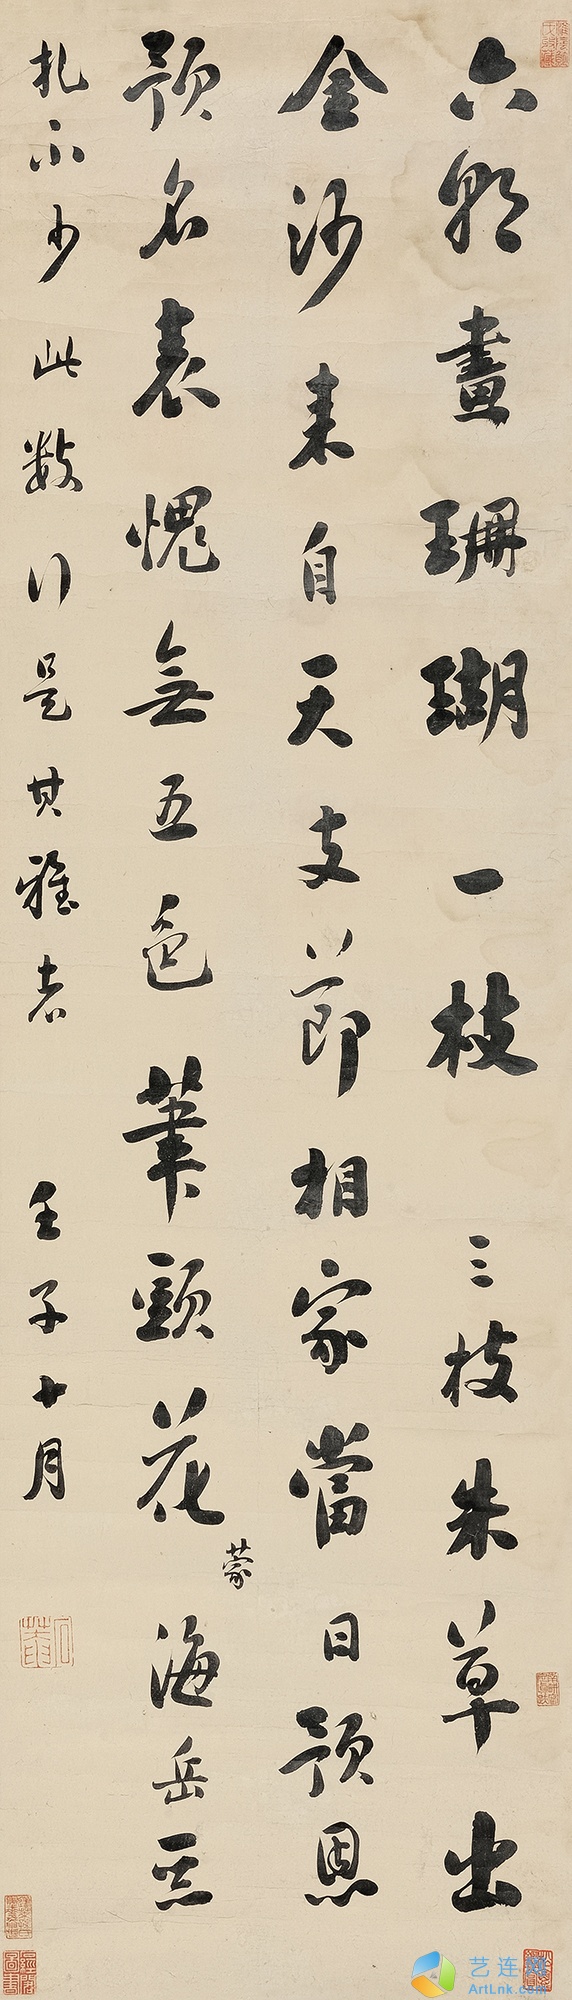 六朝畫珊瑚一枝 三枝朱草出
金沙來自天支節相家當日預恩
蒙
預名表愧無五色筆頭花 海岳
札不少此數行是其雅者 壬子十月
艺连网
ArtLnk.com